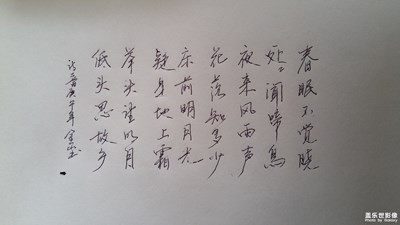 春眠不觉晓
处处闻啼鸟
夜来风雨声
花落知多少
床前明月光
疑是地上霜
举头望明月
低头思故乡
盖乐世影像
Photo by Galaxy